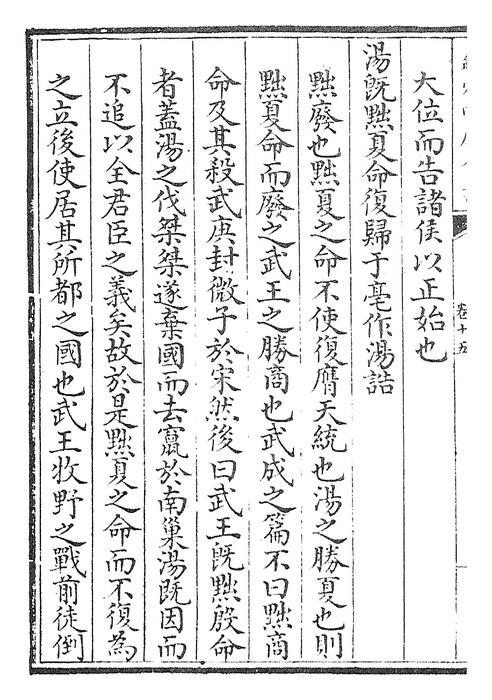 大位而告諸侯以正始也
湯既黜夏命復歸于亳作湯誥
黜廢也黜夏之命不使復膺天統也湯之勝夏也則
黜夏命而廢之武王之勝商也武成之篇不曰黜商
命及其殺武庚封微子於宋然後曰武王既黜殷命
者蓋湯之伐桀桀遂棄國而去竄於南巢湯既因而
不追以全君臣之義矣故於是黜夏之命而不復為
之立後使居其所都之國也武王牧野之戰前徒倒
卷十五